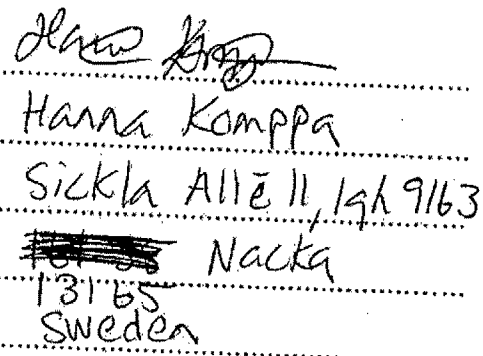 Hanna Komppa
Sickla Allē 11, lgh 9163
Nacka
13165
Sweden